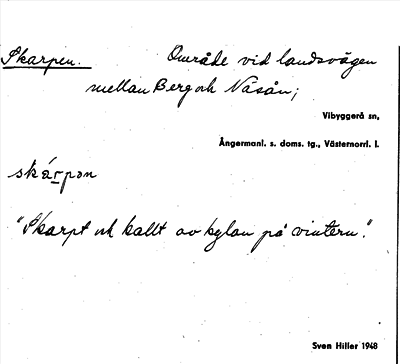 Skarpen. Område vid landsvägen
mellan Berg och Näsån;
Vibyggerå sn,
Ångermanl. s. doms. tg., Västernorrl. l.
skárpən
"Skarpt och kallt av kylan på vintern."
Sven Hiller 1948